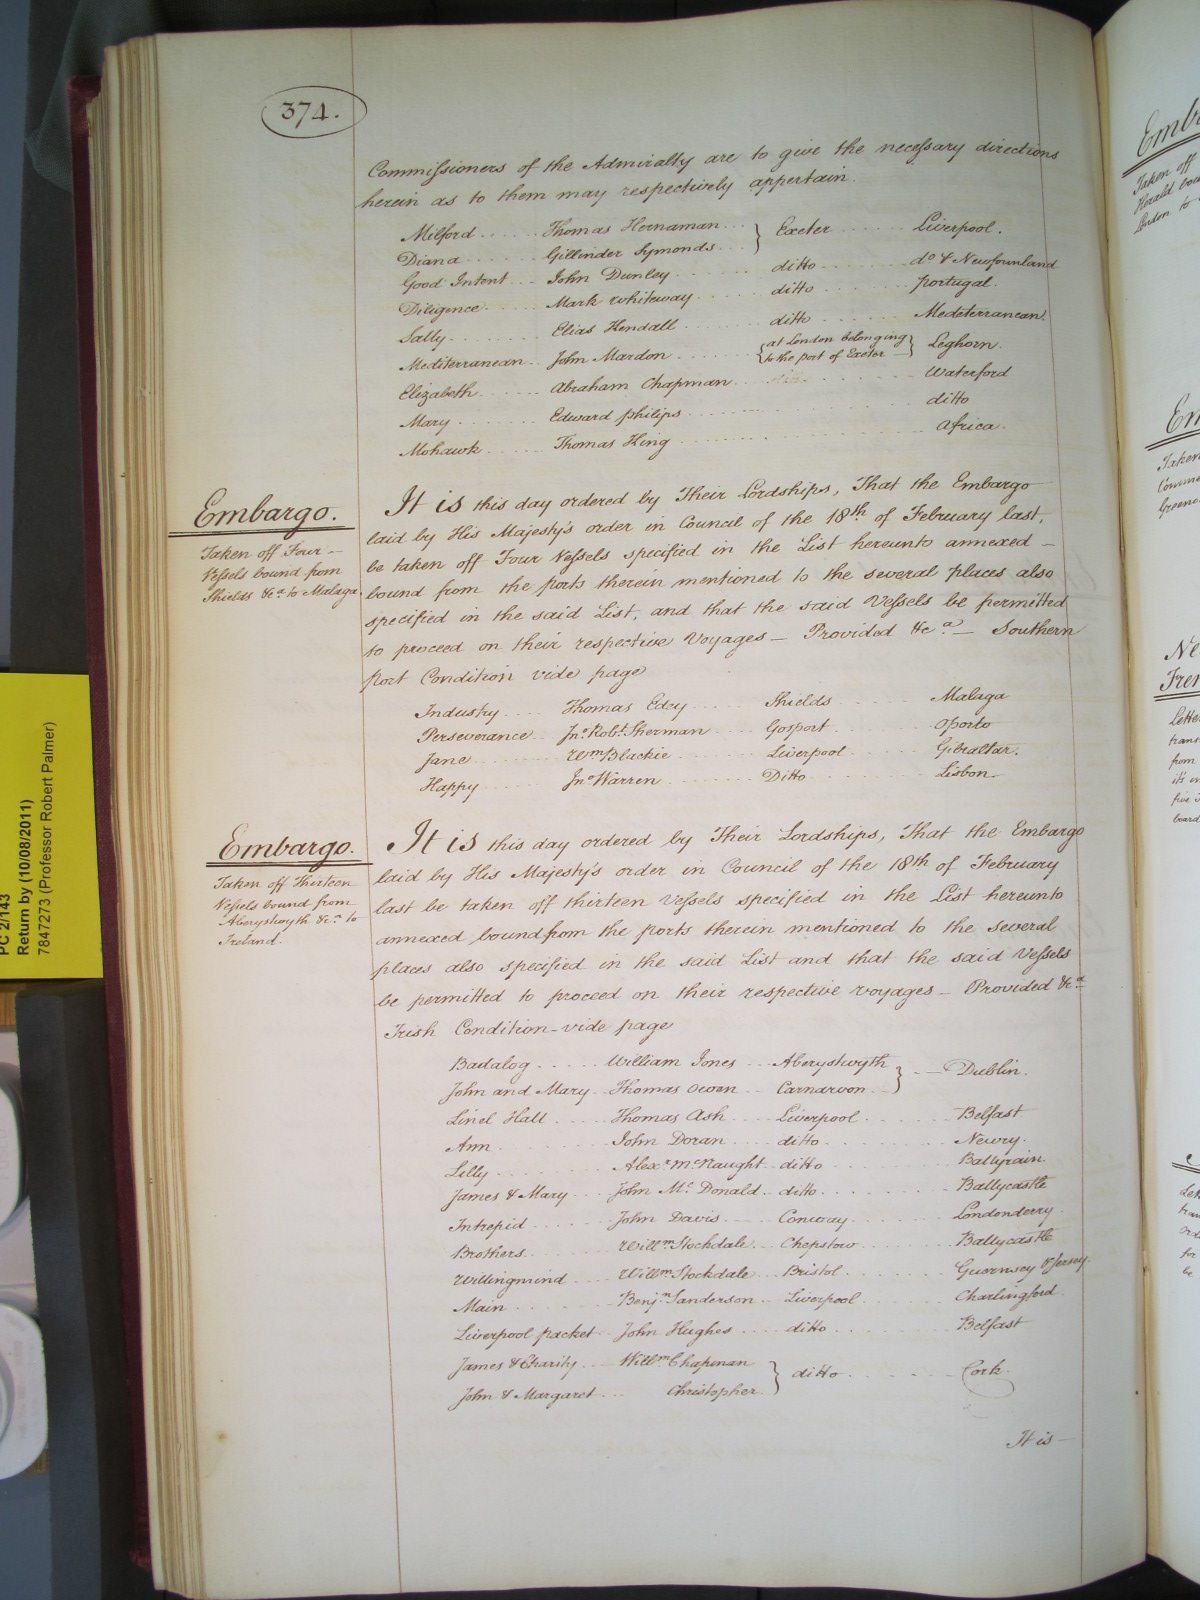 374.
Commissioners of the Admiralty are to give the necessary directions
herein as to them may respectively appertain.
Milford ..... Thomas Hernaman ... } Exeter ...... Liverpool.
Diana ....... Gillinder Symonds ...
Good Intent ... John Dunley ....... ditto ....... do & Newfounland
Diligence ..... Mark Whiteway ...... ditto ....... Portugal.
Sally ........ Elias Hendall ....... ditto ....... Mediterranean.
Mediterranean .. John Mardon ...... {at London belonging to the port of Exeter} Leghorn.
Elizabeth ...... Abraham Chapman ... ditto ...... Waterford
Mary ........ Edward Philips ........ ditto
Mohawk ..... Thomas King ........ Africa.
Embargo.
Taken off Four
Vessels bound from
Shields &ca to Malaga.
It is this day ordered by Their Lordships, That the Embargo
laid by His Majesty's order in Council of the 18th of February last,
be taken off Four Vessels specified in the List hereunto annexed -
bound from the ports therein mentioned to the several places also
specified in the said List, and that the said Vessels be permitted
to proceed on their respective Voyages - Provided &ca - Southern
Port Condition vide page
Industry ..... Thomas Edey .... Shields ....... Malaga
Perseverance .. Jno Robt Sherman .... Gosport ....... Oporto
Jane ......... Wm Blackie ....... Liverpool ....... Gibraltar.
Happy ....... Jno Warren ........ Ditto ....... Lisbon
Embargo.
Taken off Thirteen
Vessels bound from
Aberystwyth &ca to
Ireland.
It is this day ordered by Their Lordships, That the Embargo
laid by His Majesty's order in Council of the 18th of February
last be taken off thirteen Vessels specified in the List hereunto
annexed bound from the ports therein mentioned to the several
places also specified in the said List and that the said Vessels
be permitted to proceed on their respective voyages - Provided &ca
Irish Condition - vide page
Badalog ..... William Jones ... Aberystwyth } ... Dublin.
John and Mary .. Thomas Owen ... Carnarvon
Linel Hall ..... Thomas Ash .... Liverpool ....... Belfast
Ann ......... John Doran .... ditto ....... Newry.
Lilly ......... Alexr McNaught .. ditto ....... Ballyrain.
James & Mary ... John McDonald .. ditto ....... Ballycastle
Intrepid ...... John Davis ... Conway ....... Londonderry
Brothers ....... Willm Stockdale .. Chepstow ....... Ballycastle
Willingmind .... Willm Stockdale .. Bristol ....... Guernsey & Jersey.
Main ........ Benjn Sanderson .. Liverpool ....... Charlingford
Liverpool packet .. John Hughes ... ditto ....... Belfast
James & Charity ... Willm Chapman } ditto ....... Cork.
John & Margaret ... Christopher
It is -
PC 2/143
Return by (10/08/2011)
7847273 (Professor Robert Palmer)